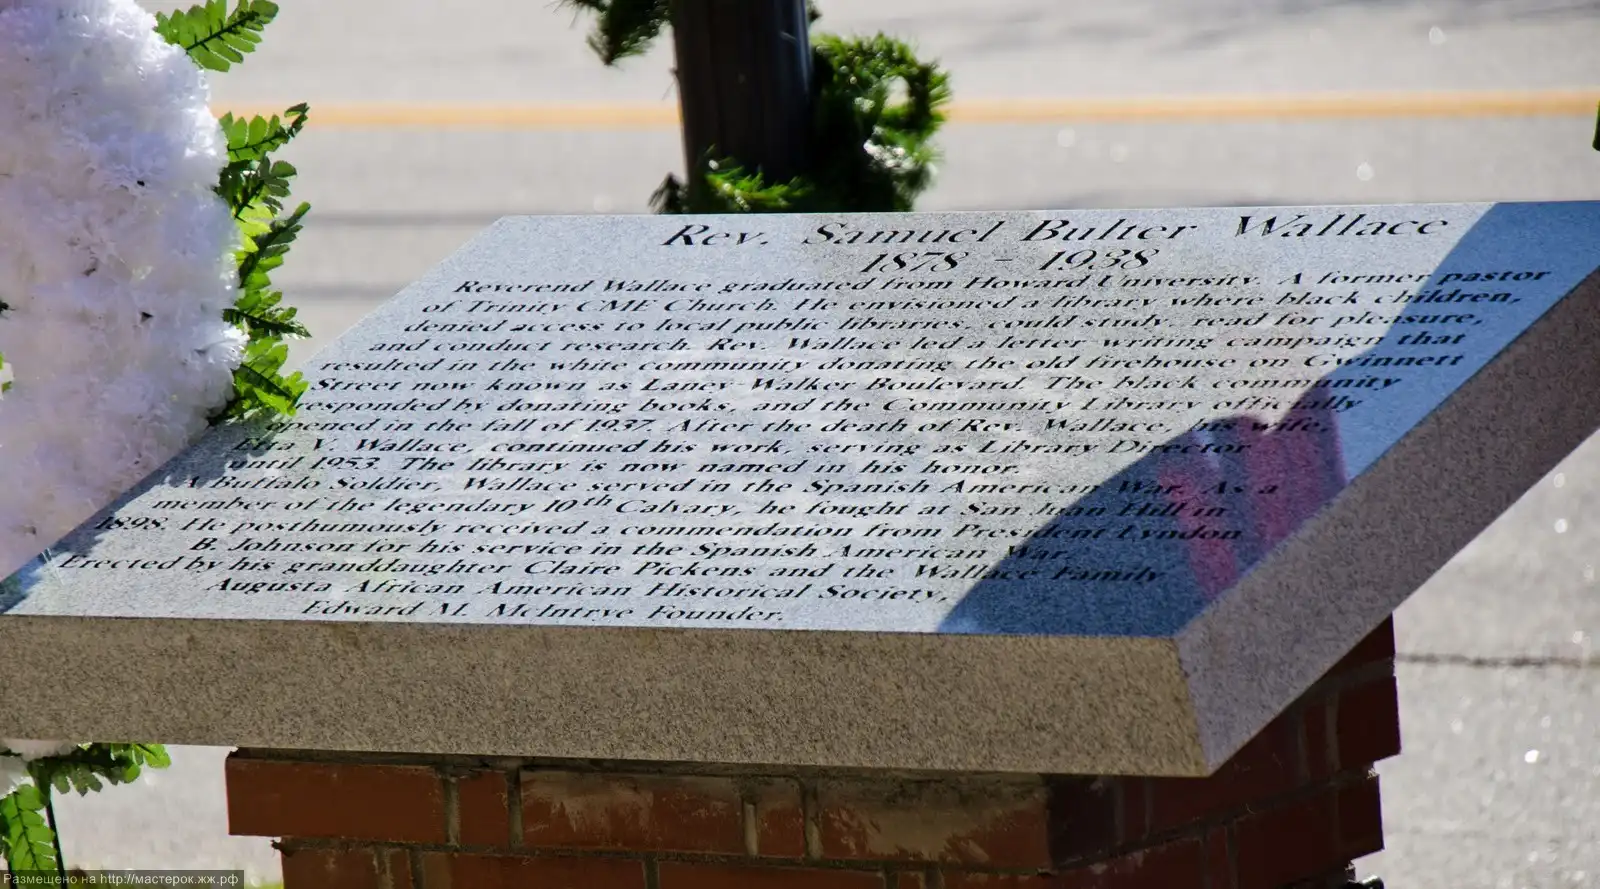 Rev. Samuel Bulter Wallace
1878 - 1938
Reverend Wallace graduated from Howard University. A former pastor
of Trinity CME Church. He envisioned a library where black children,
denied access to local public libraries, could study, read for pleasure,
and conduct research. Rev. Wallace led a letter writing campaign that
resulted in the white community donating the old firehouse on Gwinnett
Street now known as Laney-Walker Boulevard. The black community
responded by donating books, and the Community Library officially
opened in the fall of 1937. After the death of Rev. Wallace, his wife,
Etta V. Wallace, continued his work, serving as Library Director
until 1953. The library is now named in his honor.
A Buffalo Soldier, Wallace served in the Spanish American War. As a
member of the legendary 10th Calvary, he fought at San Juan Hill in
1898. He posthumously received a commendation from President Lyndon
B. Johnson for his service in the Spanish American War.
Erected by his granddaughter Claire Pickens and the Wallace Family
Augusta African American Historical Society,
Edward M. McIntrye Founder.
Размещено на http://мастерок.жж.рф